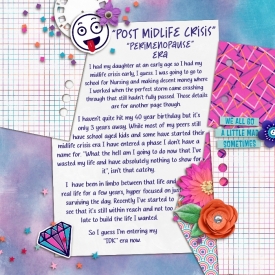 "POST MIDLIFE CRISIS"
"PERIMENOPAUSE"
ERA
I had my daughter at an early age so I had my
midlife crisis early, I guess. I was going to go to
school for Nursing and making decent money where
I worked when the perfect storm came crashing
through that still hadn't fully passed. Those details
are for another page though.
I haven't quite hit my 40 year birthday but it's
only 3 years away. While most of my peers still
have school aged kids and some have started their
midlife crisis era I have entered a phase I don't have a
name for. "What the hell am I going to do now that I've
wasted my life and have absolutely nothing to show for
it", isn't that catchy.
I have been in limbo between that life and
real life for a few years, hyper focused on just
surviving the day. Recently I've started to
see that it's still within reach and not too
late to build the life I wanted.
So I guess I'm entering my
"IDK" era now.
WE ALL GO
A LITTLE MAD
SOMETIMES